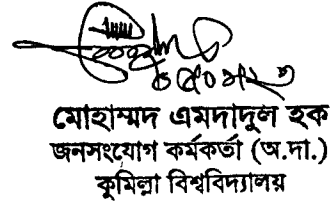 মোহাম্মদ এমদাদুল হক
জনসংযোগ কর্মকর্তা (অ.দা.)
কুমিল্লা বিশ্ববিদ্যালয়